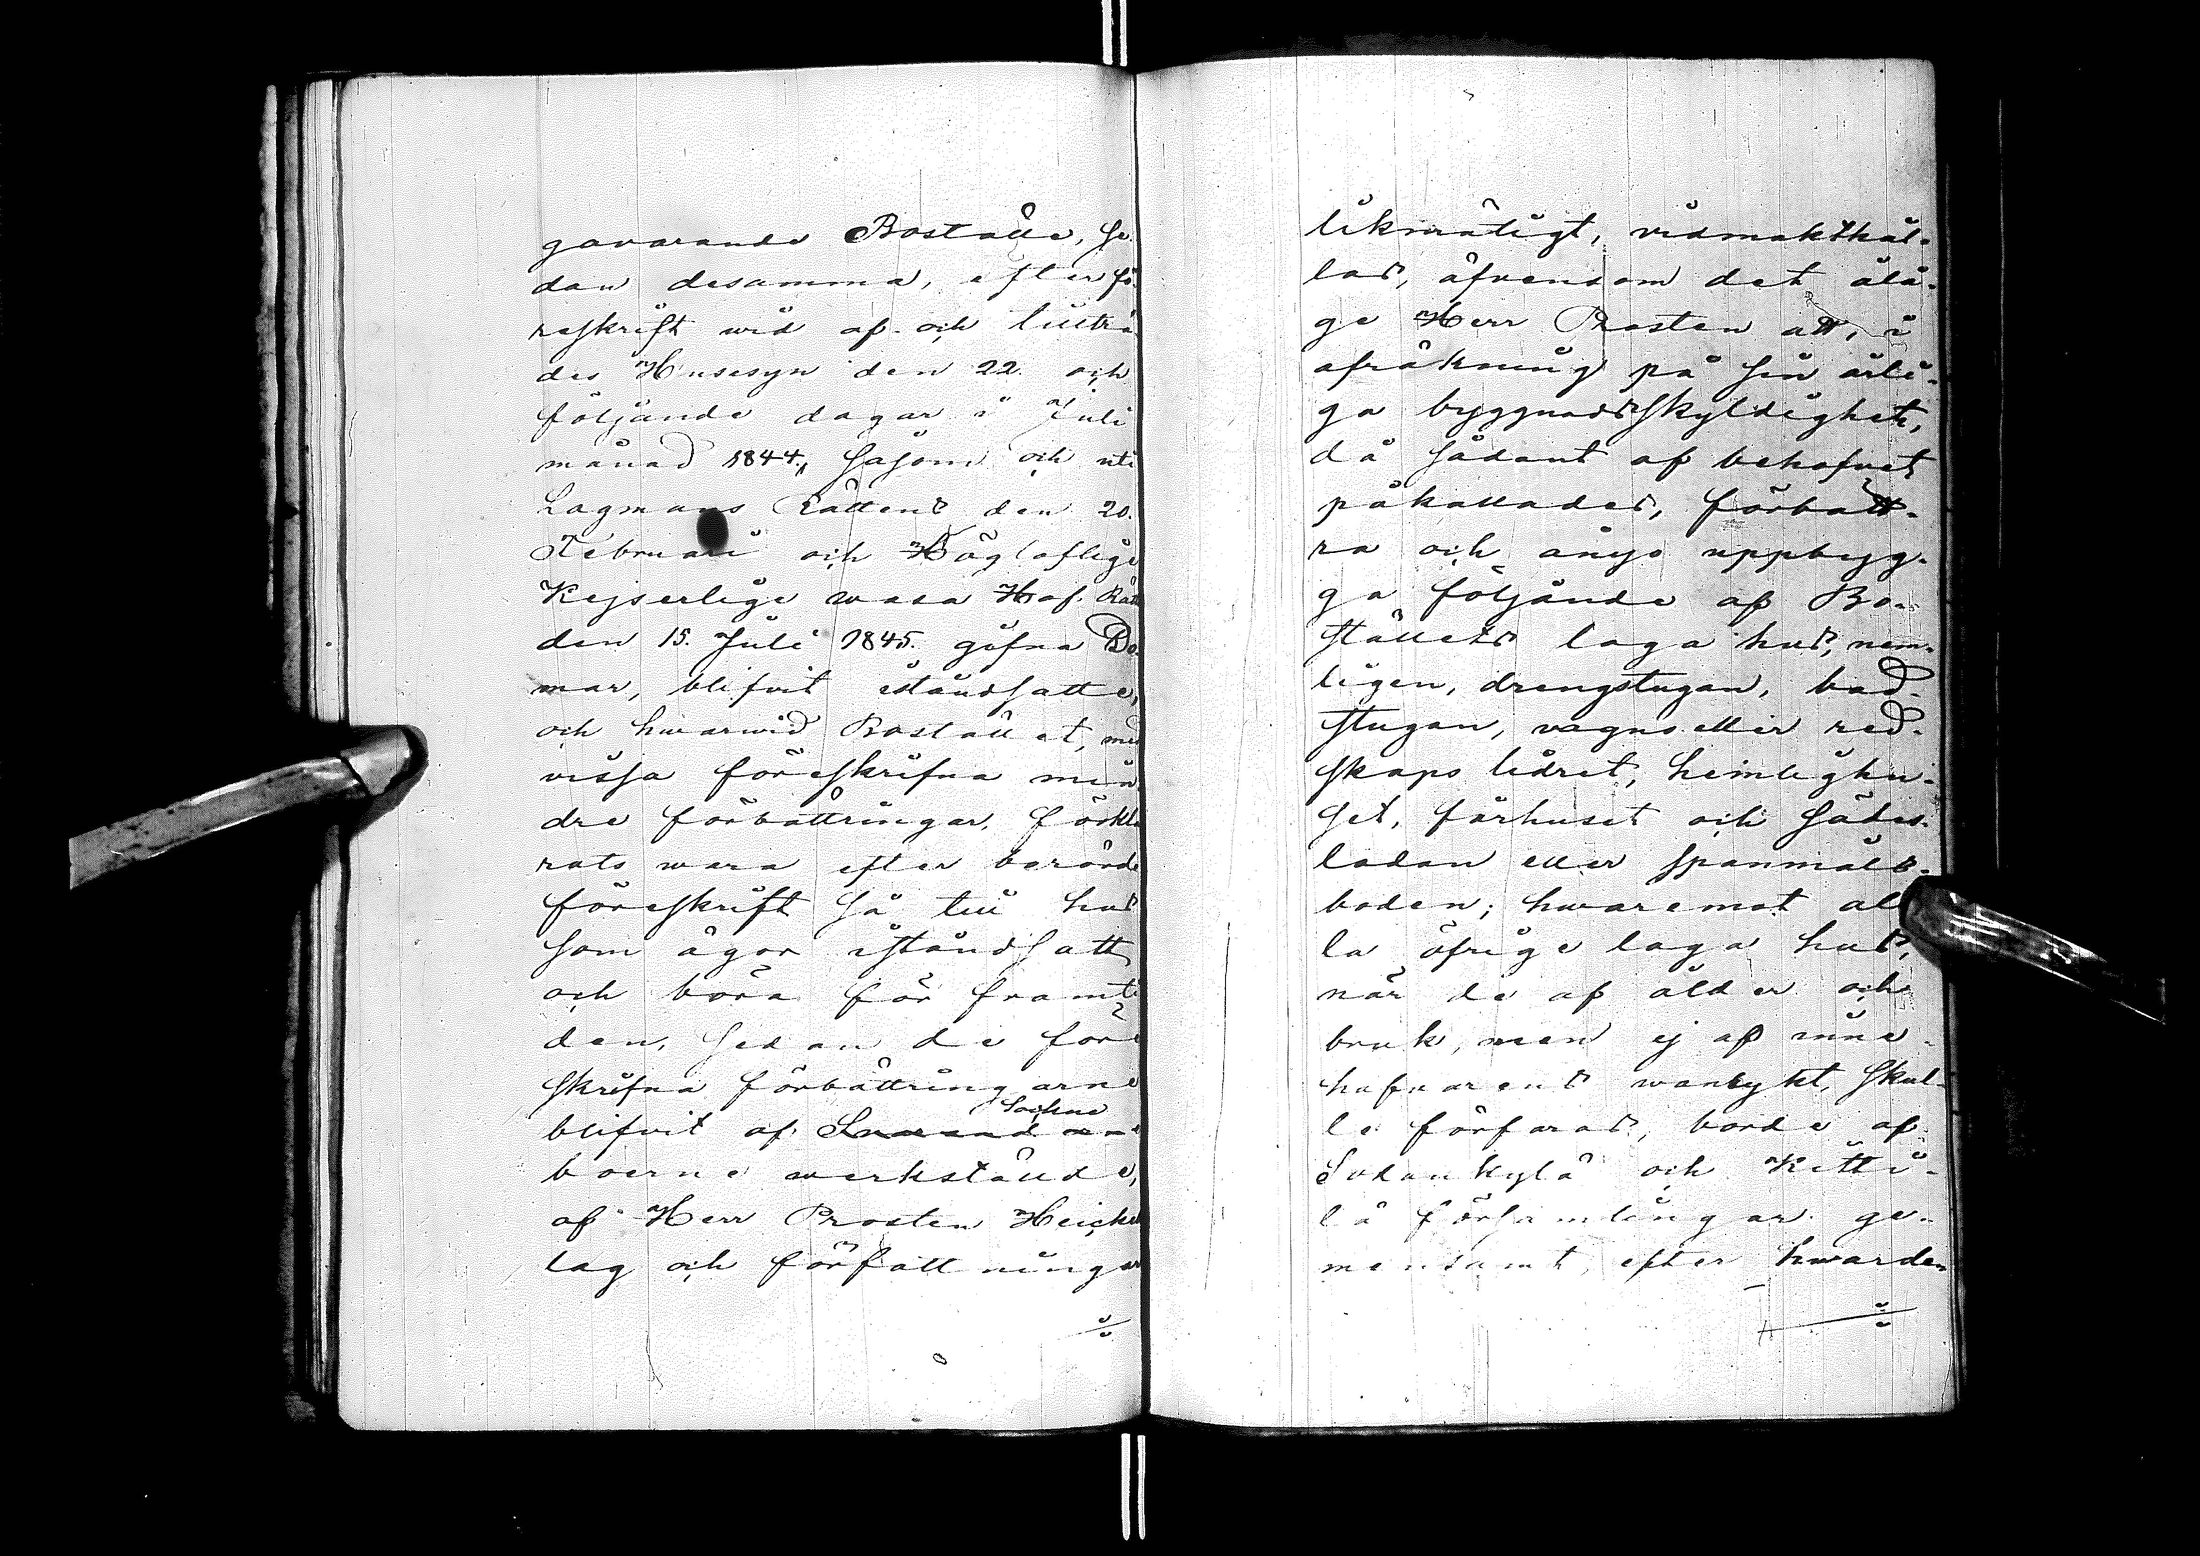 gavarande Boställe, se-
dan desamma, efter fö-
reskrift wid af- och tillträ-
des Husesyn den 22. och
följande dagar i Juli
månad 1844., såsom och uti
Lagmans Rättens den 20.
Februari och Högloflige
Kejserlige wasa Hof-Rätt
den 15. Juli 1845. gifna Do-
mar, blifvit iståndsatte,
och hwarwid Bostället, med
vissa föreskrifna min
dre förbättringar, förkla
rats wara efter berörde
föreskrift så till hus
som ägor iståndsatt
och böra för framti
den, sedan de före
skrifna förbättringarne
blifvit af Sockne
boerne werkstände,
af Herr Prosten Heickel
lag och författningar
./.
likmätigt, vidmakthål-
las, äfvensom det ålå-
ge Herr Prosten att, i
afräkning på sin årli-
ga byggnadsskyldighet,
då sådant af behofvet
påkallades, förbätt-
ra och ånyo uppbyg-
ga följande af Bo-
ställets laga hus, nem-
ligen, drengstugan, bad-
stugan, vagns eller red-
skaps lidret, hemlighu-
set, fårhuset och sädes-
ladan eller spanmåls-
boden; hwaremot al
la öfrige laga hus,
när de af ålder och
bruk, men ej af inne-
hafvarens wanbykt, skul-
le förfaras, borde af
Sodankylä och Kitti-
lä församlingar ge-
mensamt, efter hwarden
./.